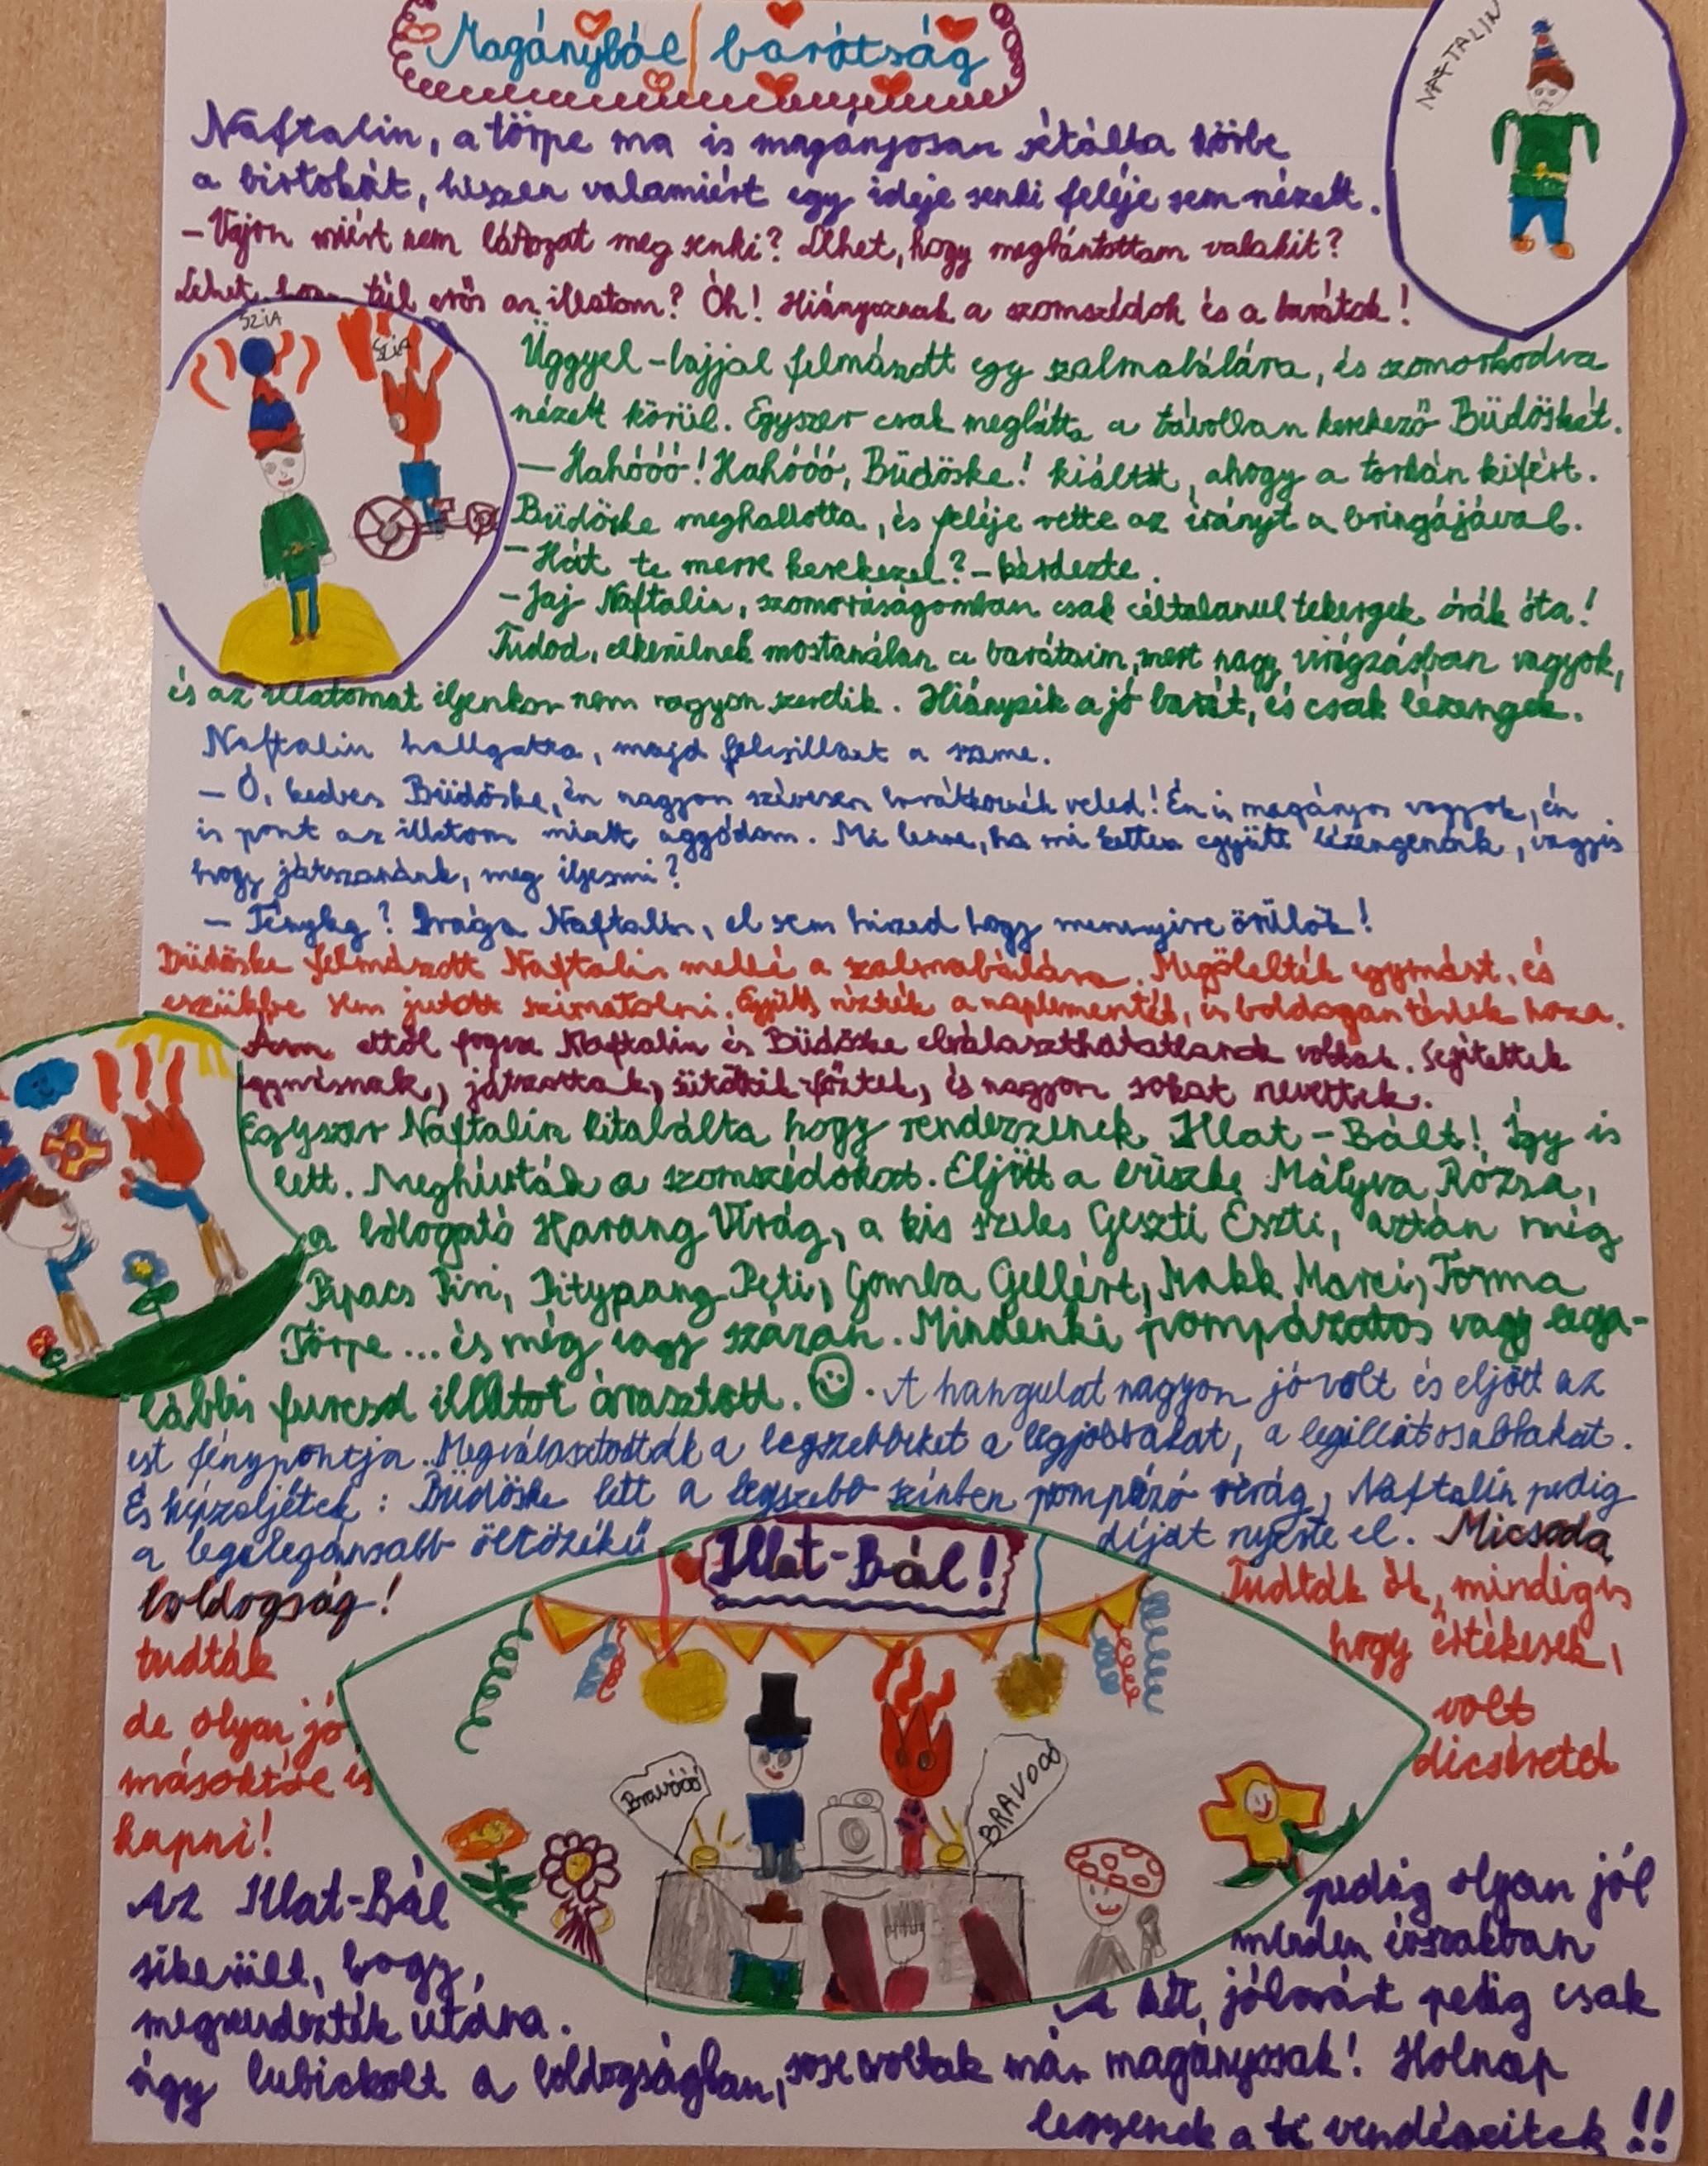 Magányból barátság
NAFTALIN
Naftalin, a törpe ma is magányosan sétálta körbe
a birtokát, hiszen valamiért egy ideje senki feléje sem nézett.
- Vajon miért nem látogat meg senki? Lehet, hogy megbántottam valakit?
Lehet, hogy túl erős az illatom? Óh! Hiányoznak a szomszédok és a barátok!
SZIA
SZIA
Üggyel-bajjal felmászott egy szalmabálára, és szomorkodva
nézett körül. Egyszer csak meglátta a távolban kerekező Büdöskét.
- Hahóóó! Hahóóó, Büdöske! kiáltott, ahogy a torkán kifért.
Büdöske meghallotta, és feléje vette az irányt a bringájával.
- Hát te merre kerekezel? - kérdezte.
- Jaj Naftalin, szomorúságomban csak céltalanul tekergek órák óta!
Tudod, elkerülnek mostanában a barátaim, mert nagy virágzásban vagyok,
és az illatomat ilyenkor nem nagyon szeretik. Hiányzik a jó barát, és csak lézengek.
Naftalin hallgatta, majd felcsillant a szeme.
- Ó, kedves Büdöske, én nagyon szívesen barátkoznék veled! Én is magányos vagyok, én
is pont az illatom miatt aggódom. Mi lenne, ha mi ketten együtt lézengenénk, vagyis
hogy játszanánk, meg ilyesmi?
- Tényleg? Drága Naftalin, el sem hiszed hogy mennyire örülök!
Büdöske felmászott Naftalin mellé a szalmabálára. Megölelték egymást, és
eszükbe sem jutott szimatolni. Együtt nézték a naplementét, és boldogan tértek haza.
Ám ettől fogva Naftalin és Büdöske elválaszthatatlanok voltak. Segítettek
egymásnak, játszottak, sütöttek-főztek, és nagyon sokat nevettek.
Egyszer Naftalin kitalálta hogy rendezzenek Illat-Bált! Így is
lett. Meghívták a szomszédokat. Eljött a büszke Mályva Rózsa,
a bólogató Harang Virág, a kis szeles Geszti Eszti, aztán még
Pipacs Piri, Pitypang Peti, Gomba Gellért, Makk Marci, Torma
Törpe... és még vagy százan. Mindenki pompázatos vagy lega-
lábbis furcsa illatot árasztott. ☺. A hangulat nagyon jó volt és eljött az
est fénypontja. Megválasztották a legszebbeket a legjobbakat, a legillatosabbakat.
És képzeljétek: Büdöske lett a legszebb színben pompázó virág, Naftalin pedig
a legelegánsabb öltözékű díját nyerte el. Micsoda
boldogság! Tudták ők, mindig is
tudták hogy értékesek,
de olyan jó volt
másoktól is dicséretet
kapni!
Illat-Bál!
Bravóóó
BRAVOOO
Az Illat-Bál pedig olyan jól
sikerült, hogy, minden évszakban
megrendezték utána. A két jóbarát pedig csak
úgy lubickolt a boldogságban, sose voltak már magányosak! Holnap
legyenek a te vendégeitek!!